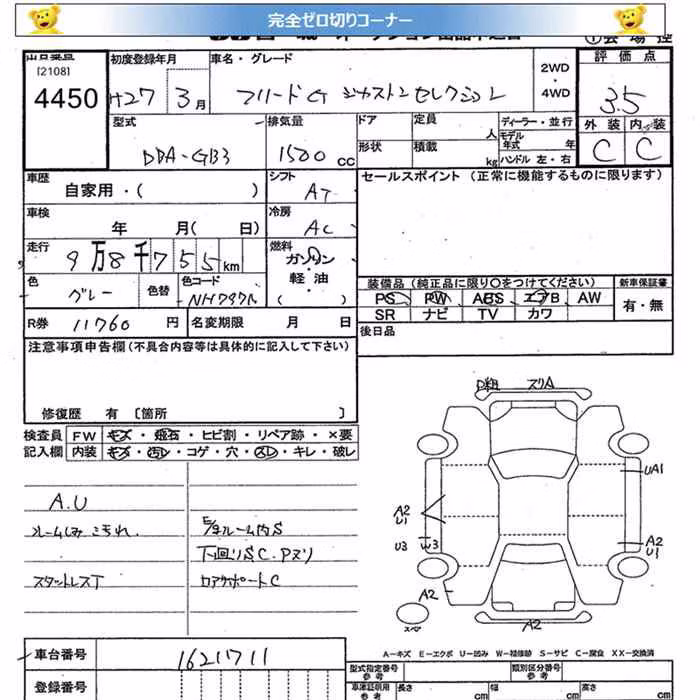 完全ゼロ切りコーナー
[2108]
4450
初度登録年月
H27 3月
車名・グレード
フリードG ジャストンセレクション
2WD
・
4WD
評価点
3.5
外装 内装
C C
型式
DBA-GB3
排気量
1500 cc
ドア
定員
人
形状
積載
kg
ディーラー・並行
モデル
年式 年
ハンドル 左・右
車歴
自家用・( )
シフト
AT
セールスポイント (正常に機能するものに限ります)
車検
年 月( 日)
冷房
AC
走行
9万8千755km
燃料
ガソリン
・
軽油
( )
色
グレー
色替
色コード
装備品 (純正品に限り〇をつけてください)
PS PW ABS エアB AW
SR ナビ TV カワ
新車保証書
有・無
R券 11760 円
名変期限 月 日
後日品
注意事項申告欄 (不具合内容等は具体的に記入して下さい)
修復歴 有 [箇所 ]
検査員
記入欄
FW キズ・飛石・ヒビ割・リペア跡・×要
内装 キズ・汚レ・コゲ・穴・スレ・キレ・破レ
A.U
スタットレスT
E/gルーム内S
下廻りSC.Pヌリ
コアサポートC
スリA
UA1
A2
U1
U3
W3
A2
U1
A2
A2
スペア
A-キズ E-エクボ U-凹み W-補修跡 S-サビ C-腐食 XX-交換済
車台番号
1621711
登録番号
型式指定番号
類別区分番号
車庫証明用
参考
長さ cm
幅 cm
高さ cm